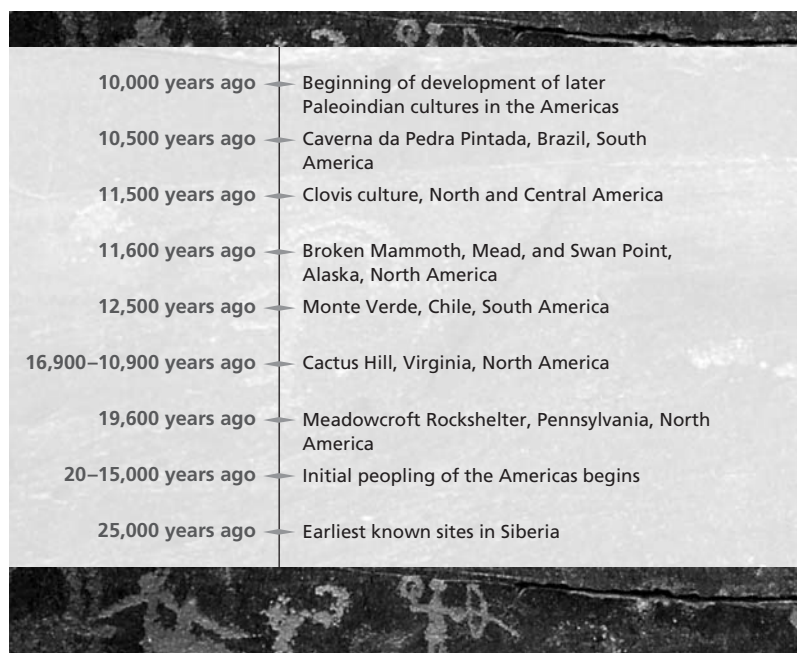 10,000 years ago Beginning of development of later
Paleoindian cultures in the Americas
10,500 years ago Caverna da Pedra Pintada, Brazil, South
America
11,500 years ago Clovis culture, North and Central America
11,600 years ago Broken Mammoth, Mead, and Swan Point,
Alaska, North America
12,500 years ago Monte Verde, Chile, South America
16,900–10,900 years ago Cactus Hill, Virginia, North America
19,600 years ago Meadowcroft Rockshelter, Pennsylvania, North
America
20–15,000 years ago Initial peopling of the Americas begins
25,000 years ago Earliest known sites in Siberia